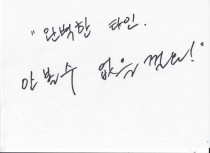 "완벽한 타인.
안 볼 수 없을 껄요!"